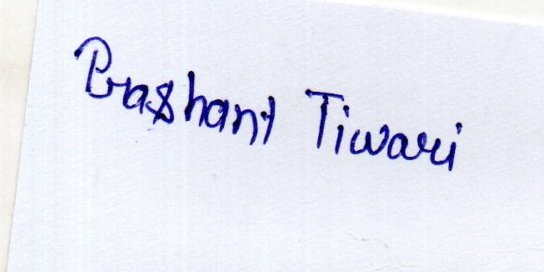 Prashant Tiwari